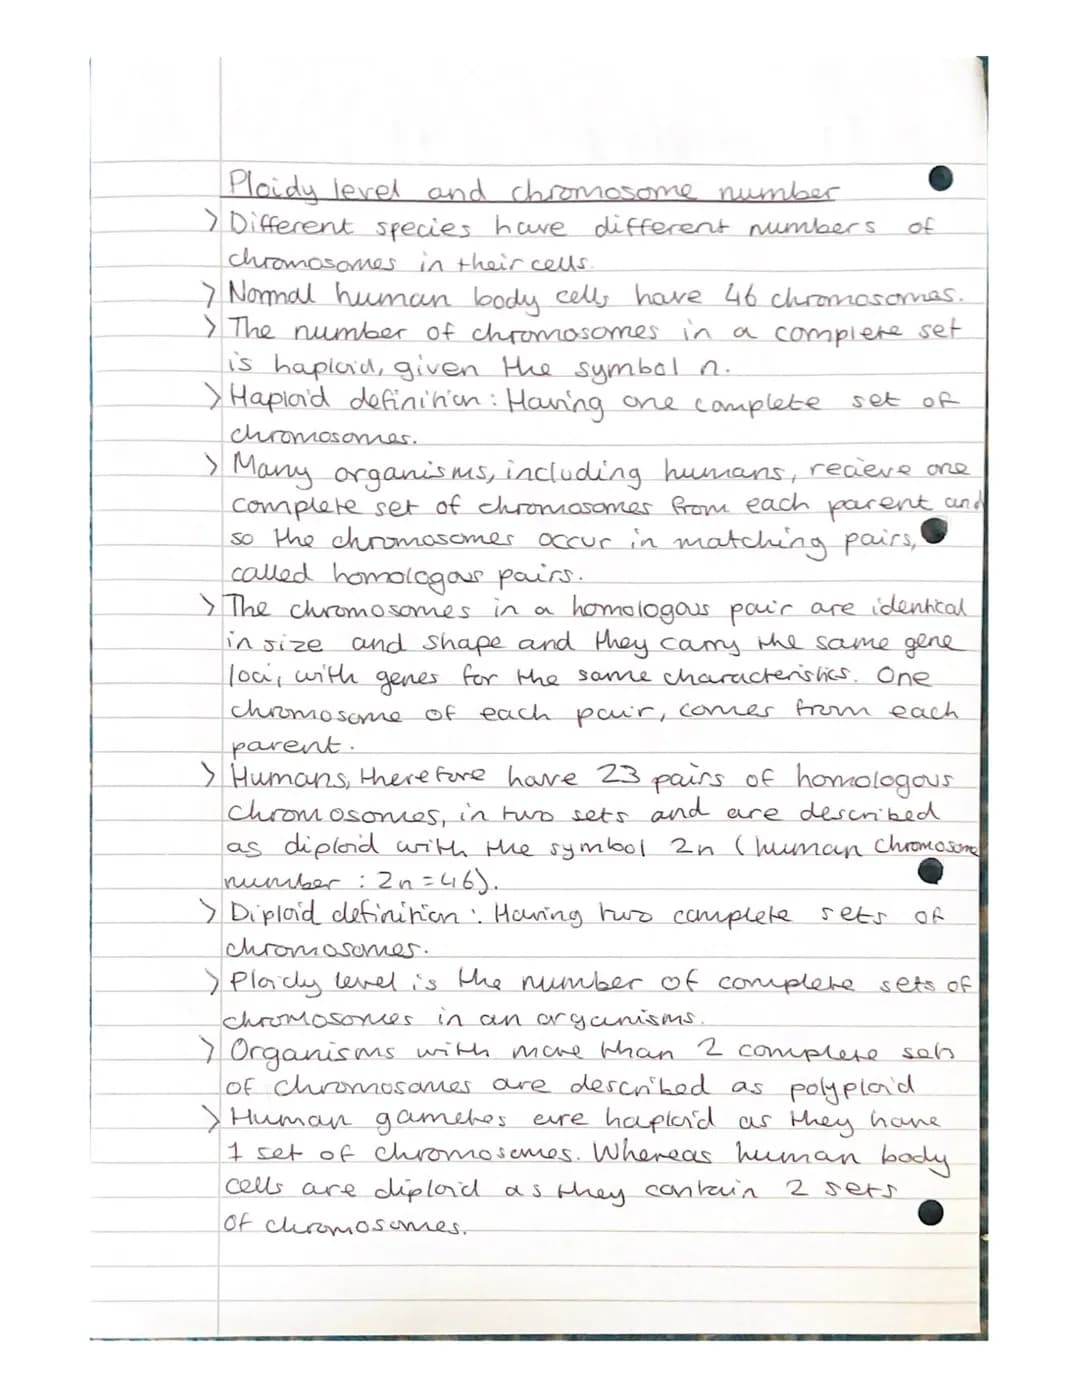 Ploidy level and chromosome number
> Different species have different numbers of
chromosomes in their cells.
> Normal human body cells have 46 chromosomes.
> The number of chromosomes in a complete set
is haploid, given the symbol n.
> Haploid definition: Having one complete set of
chromosomes.
> Many organisms, including humans, recieve one
complete set of chromosomes from each parent and
so the chromosomes occur in matching pairs,
called homologous pairs.
> The chromosomes in a homologous pair are identical
in size and shape and they carry the same gene
loci, with genes for the same characteristics. One
chromosome of each pair, comes from each
parent.
> Humans, therefore have 23 pairs of homologous
chromosomes, in two sets and are described
as diploid with the symbol 2n (human chromosome
number : 2n=46).
> Diploid definition: Having two complete sets of
chromosomes.
> Ploidy level is the number of complete sets of
chromosomes in an organisms.
> Organisms with more than 2 complete sets
of chromosomes are described as polyploid
> Human gametes are haploid as they have
1 set of chromosomes. Whereas human body
cells are diploid as they contain 2 sets
of chromosomes.